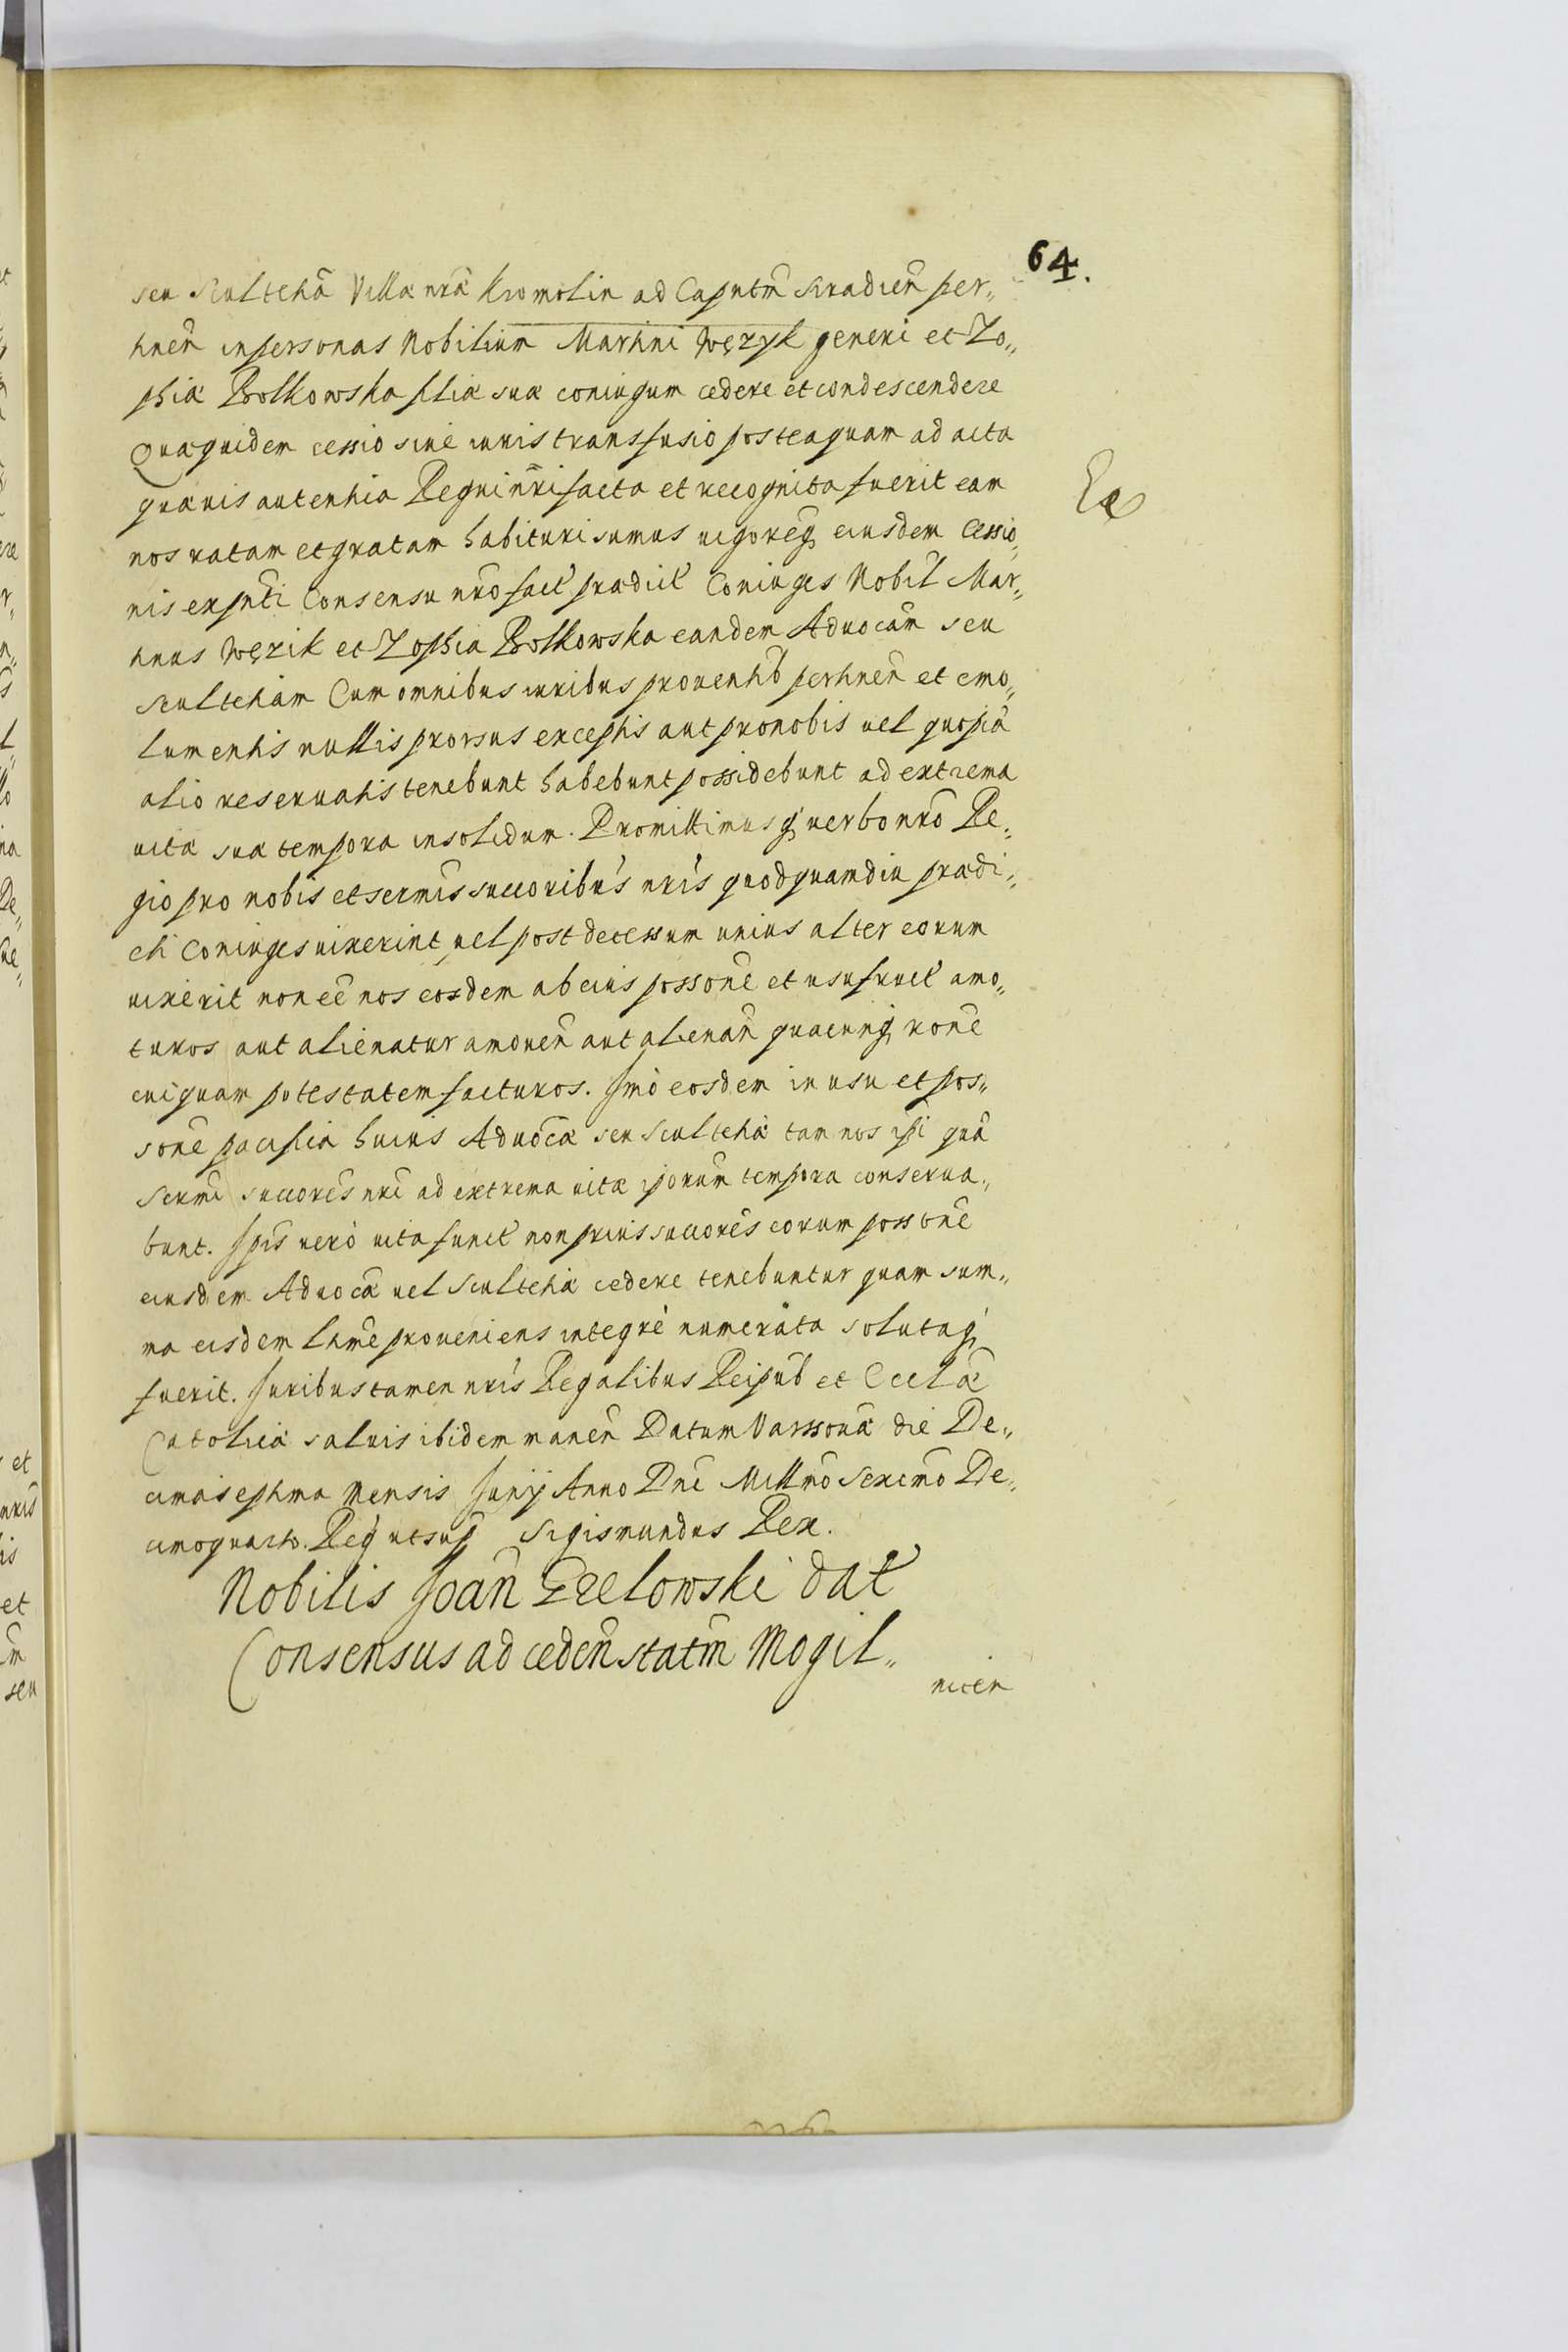 64.
seu Scultetiã Villæ nræ Kromolin ad Capntm̃ Siradien̄ per„
tinen̄ in personas Nobilium Martini Wężyk generi et Zo„
phiæ Bolkowska filiæ suæ coniugum cedere et condescendere
Quæ quidem cessio siue iuris transfusio posteaquam ad acta
quæuis autentica Regni nr̃i facta et recognita fuerit eam
nos ratam et gratam habituri sumus uigoreq₃ eiusdem Cessio„
nis ex pñti Consensu nr̃o fact̃ prædict̃ Coniuges Nobil̃ Mar„
tinus Wężik et Zophia Bolkowska eandem Aduocãm seu
Scultetiam Cum omnibus iuribus prouentib̃ pertinen̄ et emo„
lumentis nullis prorsus exceptis aut pro nobis uel quopiã
alio reseruatis tenebunt habebunt possidebunt ad extrema
uitæ suæ tempora in solidum. Promittimus q₃ uerbo nr̃o Re„
gio pro nobis et sermis̃ succoribus̃ nr̃is quod quamdiu prædi„
cti Coniuges uixerint, uel post decessum unius alter eorum
uixerit non eẽ nos eosdem ab eius possonẽ et usufruct̃ amo„
turos aut alienatur amouen̄ aut alienan̄ quacunq₃ ronẽ
cuiquam potestatem facturos. Imò eosdem in usu et pos„
sonẽ pacifica huius Aduocæ̃ seu Scultetiæ tam nos ipsi quã
Sermĩ succores̃ nr̃i ad extrema uitæ ipõrum tempora conserua„
bunt. Ipis̃ uerò uita funct̃ non prius succores̃ eorum possonẽ
eiusdem Aduocæ̃ uel Scultetiæ cedere tenebuntur quam sum„
ma eisdem l̃timẽ proueniens integrè numerata solutaq₃
fuerit. Iuribus tamen nr̃is Regalibus Reipub̃ et Eccl̃æ
Catolicæ saluis ibidem manen̄ Datum Varssouiæ die De„
cima septima Mensis Iunij Anno Dnĩ Millmõ Sexcmõ De„
cimoquarto. Reg̃ ut sup̃ Sigismundus Rex.
Nobilis Joañ dat̃
Consensus ad ceden̄ Statm̃ Mogil„
nicen